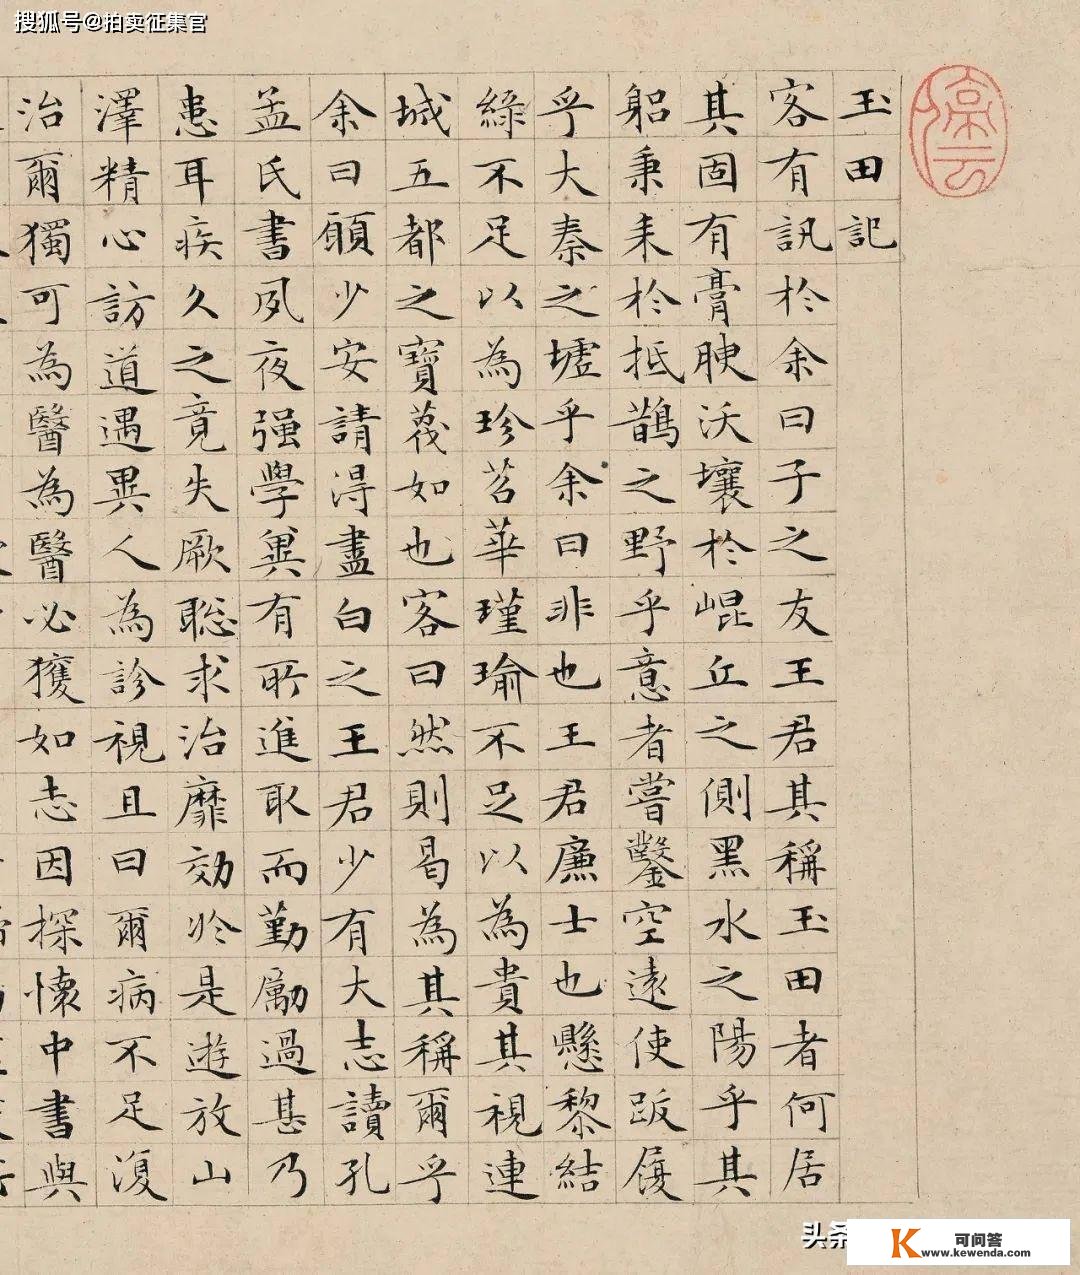 搜狐号@拍卖征集官
停云
玉田記
客有訊於余曰子之友王君其稱玉田者何居
其固有膏腴沃壤於崐丘之側黑水之陽乎其
躳秉耒於抵鵲之野乎意者嘗鑿空遠使跋履
乎大秦之墟乎余曰非也王君廉士也懸黎結
綠不足以為珍苕華瑾瑜不足以為貴其視連
城五都之寶蔑如也客曰然則曷為其稱爾乎
余曰願少安請得盡白之王君少有大志讀孔
孟氏書夙夜强學兾有所進取而勤勵過甚乃
患耳疾久之竟失厥聡求治靡効於是遊放山
澤精心訪道遇異人為診視且曰爾病不足復
治爾獨可為醫為醫必獲如志因探懷中書與
头条
可问答
www.kewenda.com